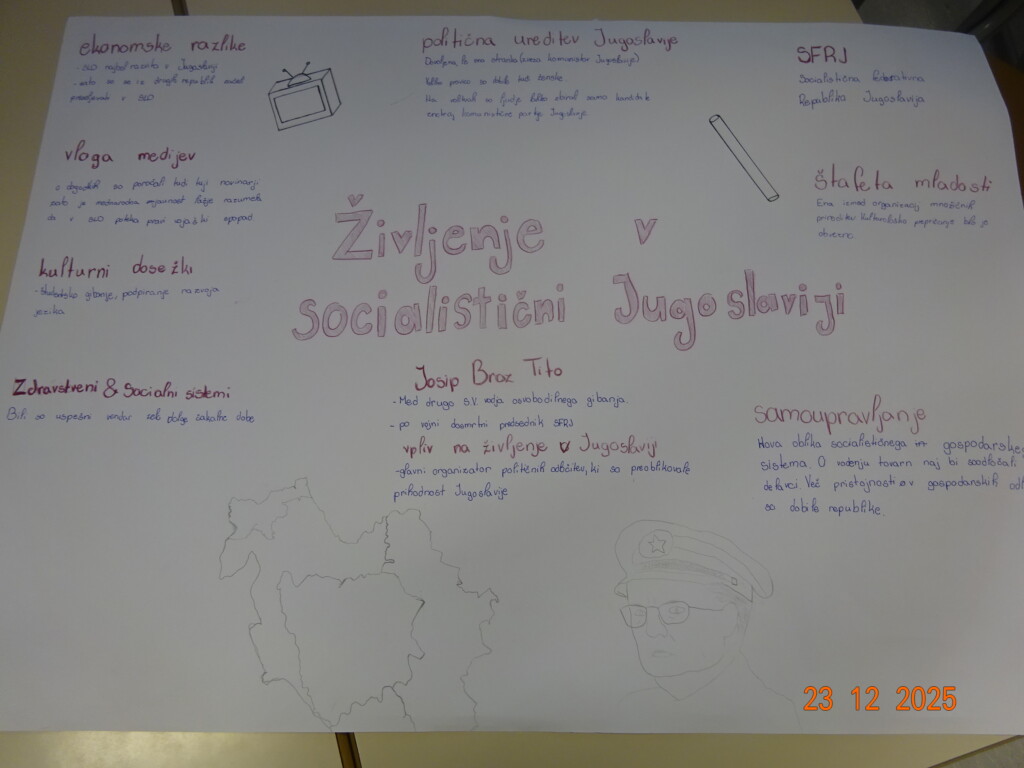 ekonomske razlike
- SLO najbolj razvita v Jugoslaviji
- zato so se iz drugih republik začeli
preseljevati v SLO
politična ureditev Jugoslavije
Dovoljena le ena stranka (zveza komunistov Jugoslavije)
Volilno pravico so dobile tudi ženske
Na volitvah so ljudje lahko izbirali samo kandidate
znotraj komunistične partije Jugoslavije
SFRJ
Socialistična Federativna
Republika Jugoslavija
vloga medijev
o dogodkih so poročali tudi tuji novinarji
zato je mednarodna javnost lažje razumela
da v SLO poteka pravi vojaški spopad
štafeta mladosti
Ena izmed organizacij množičnih
prireditev.
obvezno.
kulturni dosežki
- študentsko gibanje, podpiranje razvoja
jezika
Življenje v
socialistični Jugoslaviji
Zdravstveni & Socialni sistemi
Bili so uspešni vendar zelo dolge čakalne dobe
Josip Broz Tito
- Med drugo S.V. vodja osvobodilnega gibanja.
- po vojni dosmrtni predsednik SFRJ
vpliv na življenje v Jugoslaviji
- glavni organizator političnih odločitev, ki so preoblikovale
prihodnost Jugoslavije
samoupravljanje
Nova oblika socialističnega in gospodarskega
sistema. O vodenju tovarn naj bi soodločali
delavci. Več pristojnosti v gospodarskih
so dobile republike.
23 12 2025